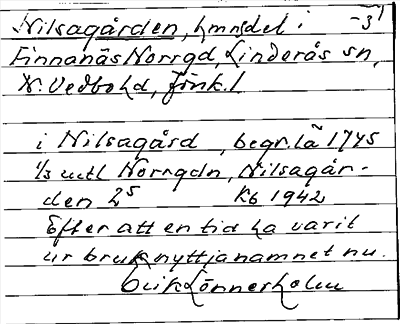 Nilsagården, hmndel i -31
Finnanäs Norrgd, Linderås sn,
N. Vedbohd, Jönk. l
i Nilsagård, begr. lä 1745
1/3 mtl Norrgdn, Nilsagår-
den 2⁵ Kb 1942
Efter att en tid ha varit
ur bruk nyttja namnet nu.
Erik Lönnerholm